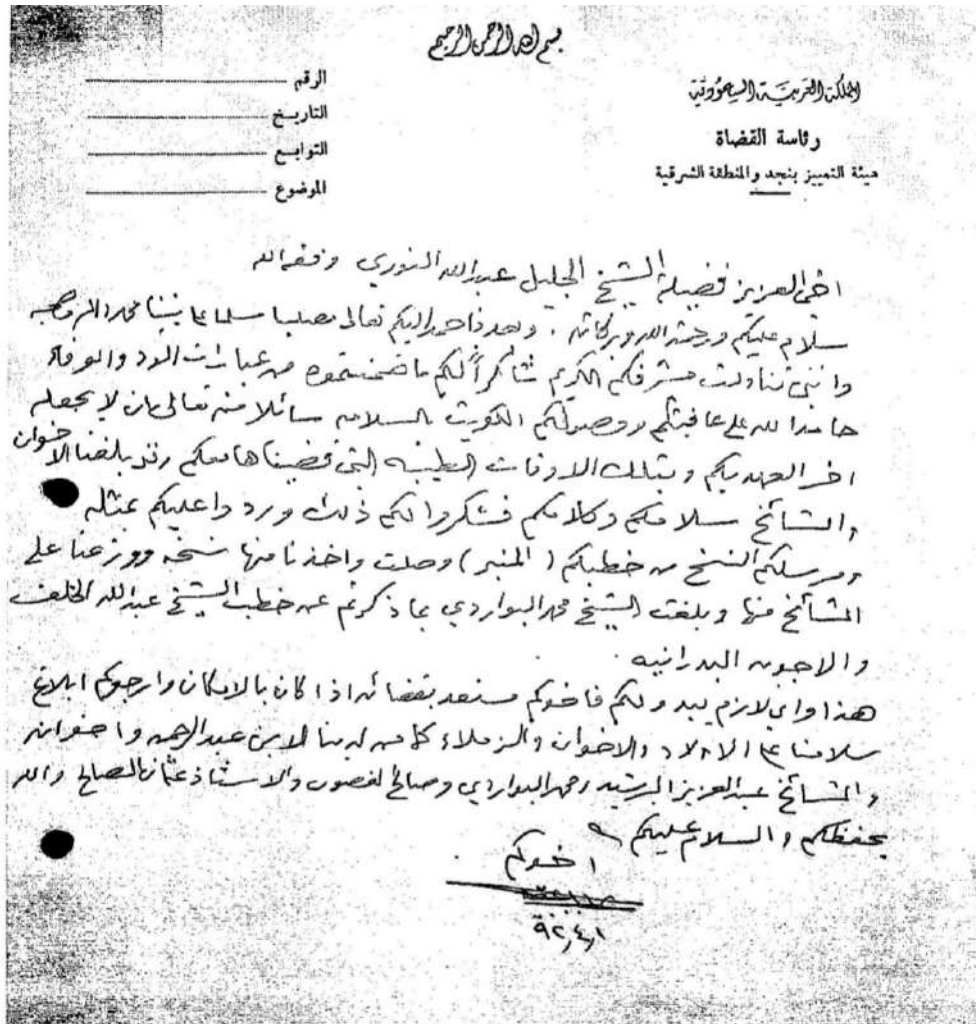 بسم الله الرحمن الرحيم
المملكة العربية السعودية
رئاسة القضاة
هيئة التمييز بنجد والمنطقة الشرقية
الرقم
التاريخ
التوابع
الموضوع
اخي العزيز فضيلة الشيخ الجليل عبدالله النوري وفقه الله
سلام عليكم ورحمة الله وبركاته . وبعد فاحمد اليكم تعالى مصليا مسلما على نبينا محمد واله وصحبه
وانني تناولت مشرفكم الكريم شاكراً لكم ما ضمنتموه من عبارات الود والوفاء
حامدا لله على عافيتكم ووصولكم الكويت بالسلامه سائلا منه تعالى بان لا يجعله
اخر العهد بكم وبتلك الاوقات الطيبه التي قضيناها معكم وقد بلغنا الاخوان
والمشائخ سلامكم وكلامكم فشكروا لكم ذلك وردوا عليكم بمثله
ومرسلكم النسخ من خطبكم ( المنبر ) وصلت واخذنا منها نسخه ووزعنا على
المشائخ منها وبلغت الشيخ محمد البواردي بما ذكرتم عن خطب الشيخ عبدالله الخلف
والاجوبه البدرانيه .
هذا واي لازم يبدو لكم فاخوكم مستعد بقضائه اذا كان بالامكان وارجوكم ابلاغ
سلامنا على الاولاد والاخوان والزملاء كما من لدينا الابن عبدالرحمن واخوانه
والمشائخ عبدالعزيز الرشيد ومحمد البواردي وصالح الغصون والاستاذ عثمان الصالح والله
يحفظكم والسلام عليكم
اخوكم
٩٢/٤/١